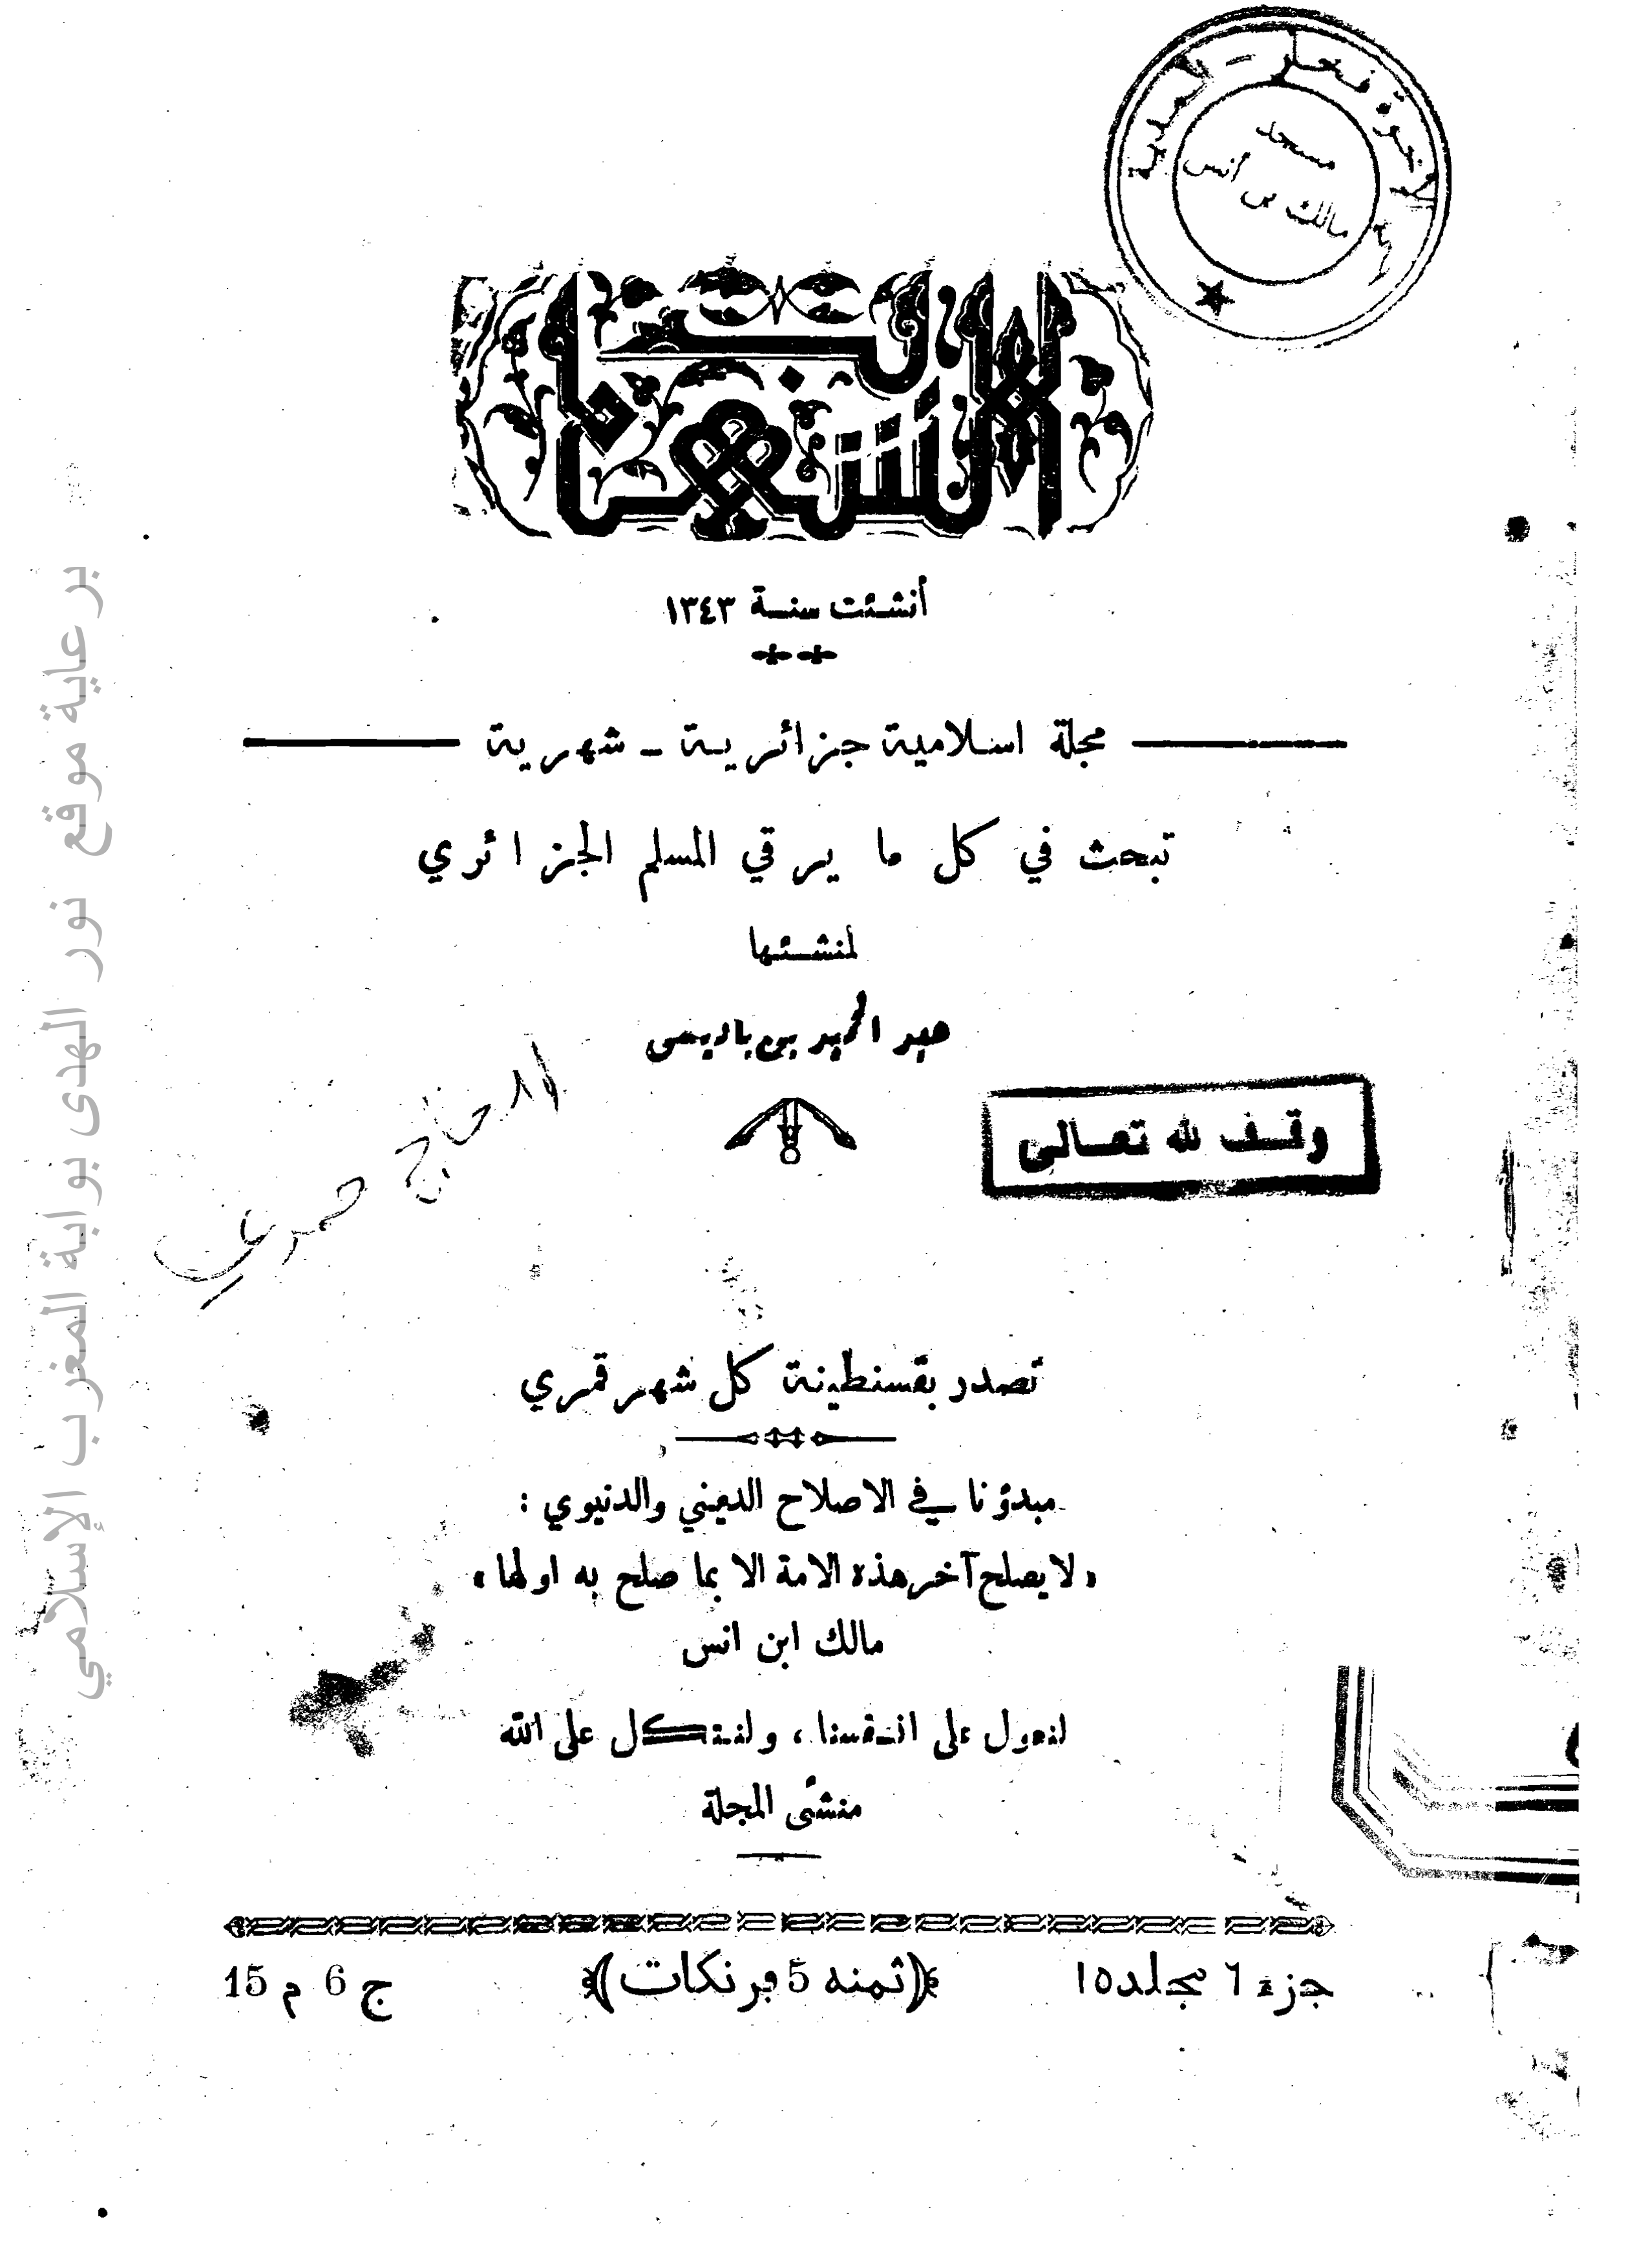 الإخوة فخار - المدية
مسجد
مالك بن أنس
الشهاب
أنشئت سنة ١٣٤٣
مجلة اسلامية جزائرية - شهرية
تبحث في كل ما يرقي المسلم الجزائري
لمنشئها
عبد الحميد بن باديس
وقف لله تعالى
الحاج
تصدر بقسنطينة كل شهر قمري
مبدؤنا في الاصلاح الديني والدنيوي :
« لا يصلح آخر هذه الامة الا بما صلح به اولها »
مالك ابن انس
لنعول على انفسنا ، ولنتكل على الله
منشئ المجلة
جزء ٦ مجلد ١٥ ﴿ثمنه 5 فرنكات﴾ ج 6 م 15
برعاية موقع نور الهدى بوابة المغرب الإسلامي